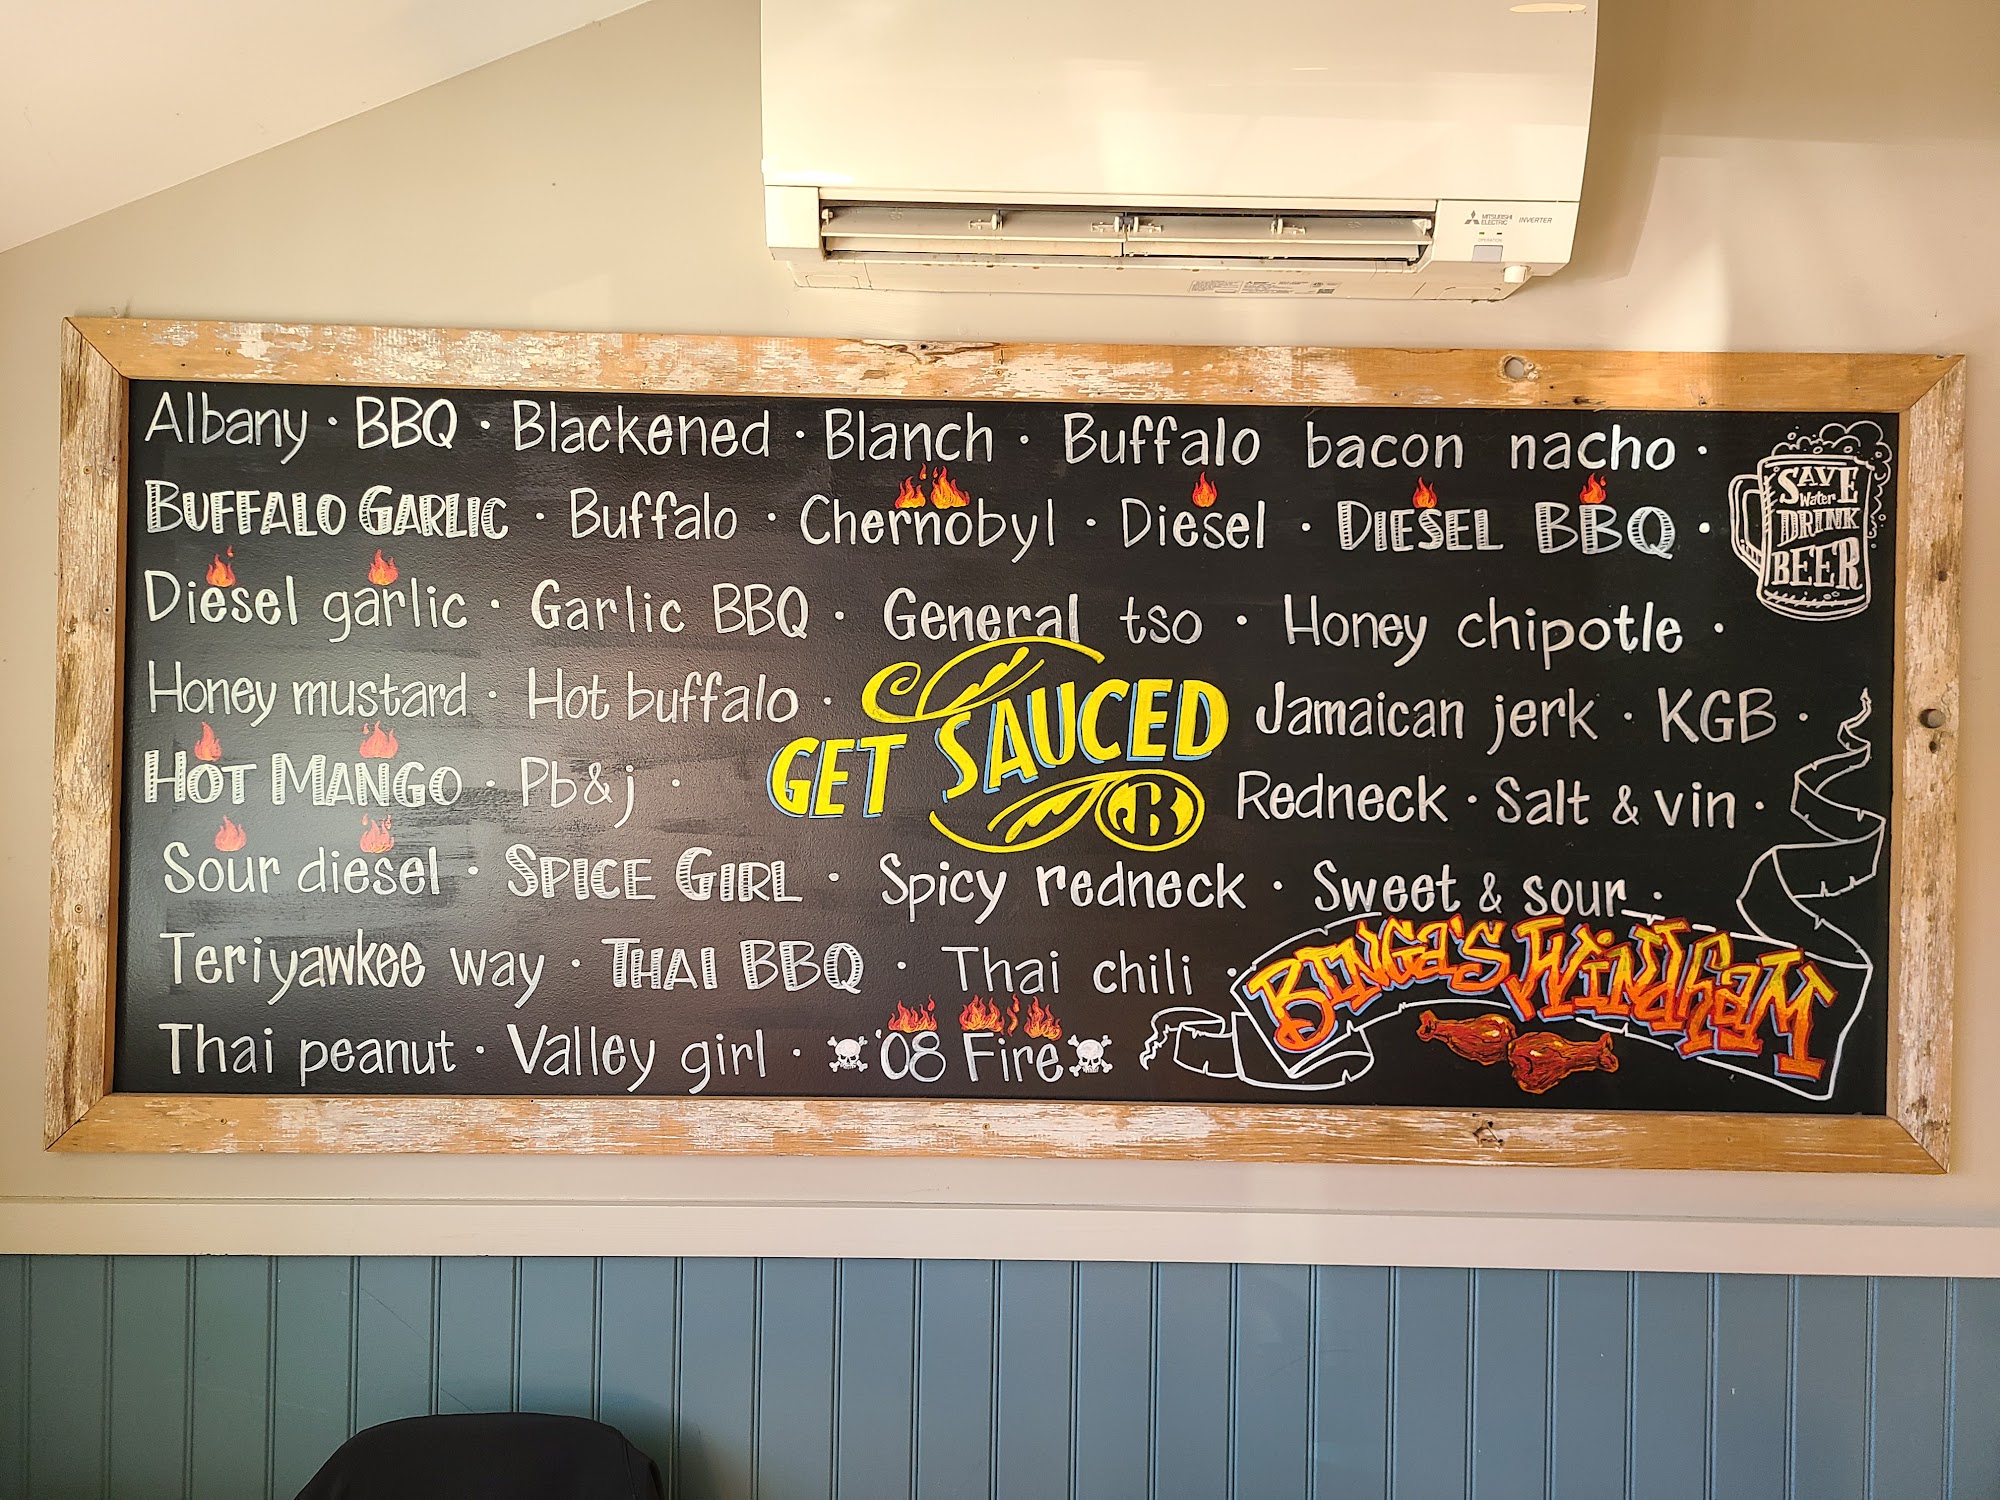 MITSUBISHI ELECTRIC INVERTER
OPERATION
Albany · BBQ · Blackened · Blanch · Buffalo bacon nacho ·
BUFFALO GARLIC · Buffalo · Chernobyl · Diesel · DIESEL BBQ ·
Diesel garlic · Garlic BBQ · General tso · Honey chipotle ·
Honey mustard · Hot buffalo · Jamaican jerk · KGB ·
HOT MANGO · Pb&j · Redneck · Salt & vin ·
Sour diesel · SPICE GIRL · Spicy redneck · Sweet & sour ·
Teriyawkee way · THAI BBQ · Thai chili ·
Thai peanut · Valley girl · '08 Fire
GET SAUCED
B
SAVE
Water
DRINK
BEER
BINGA'S WINDHAM